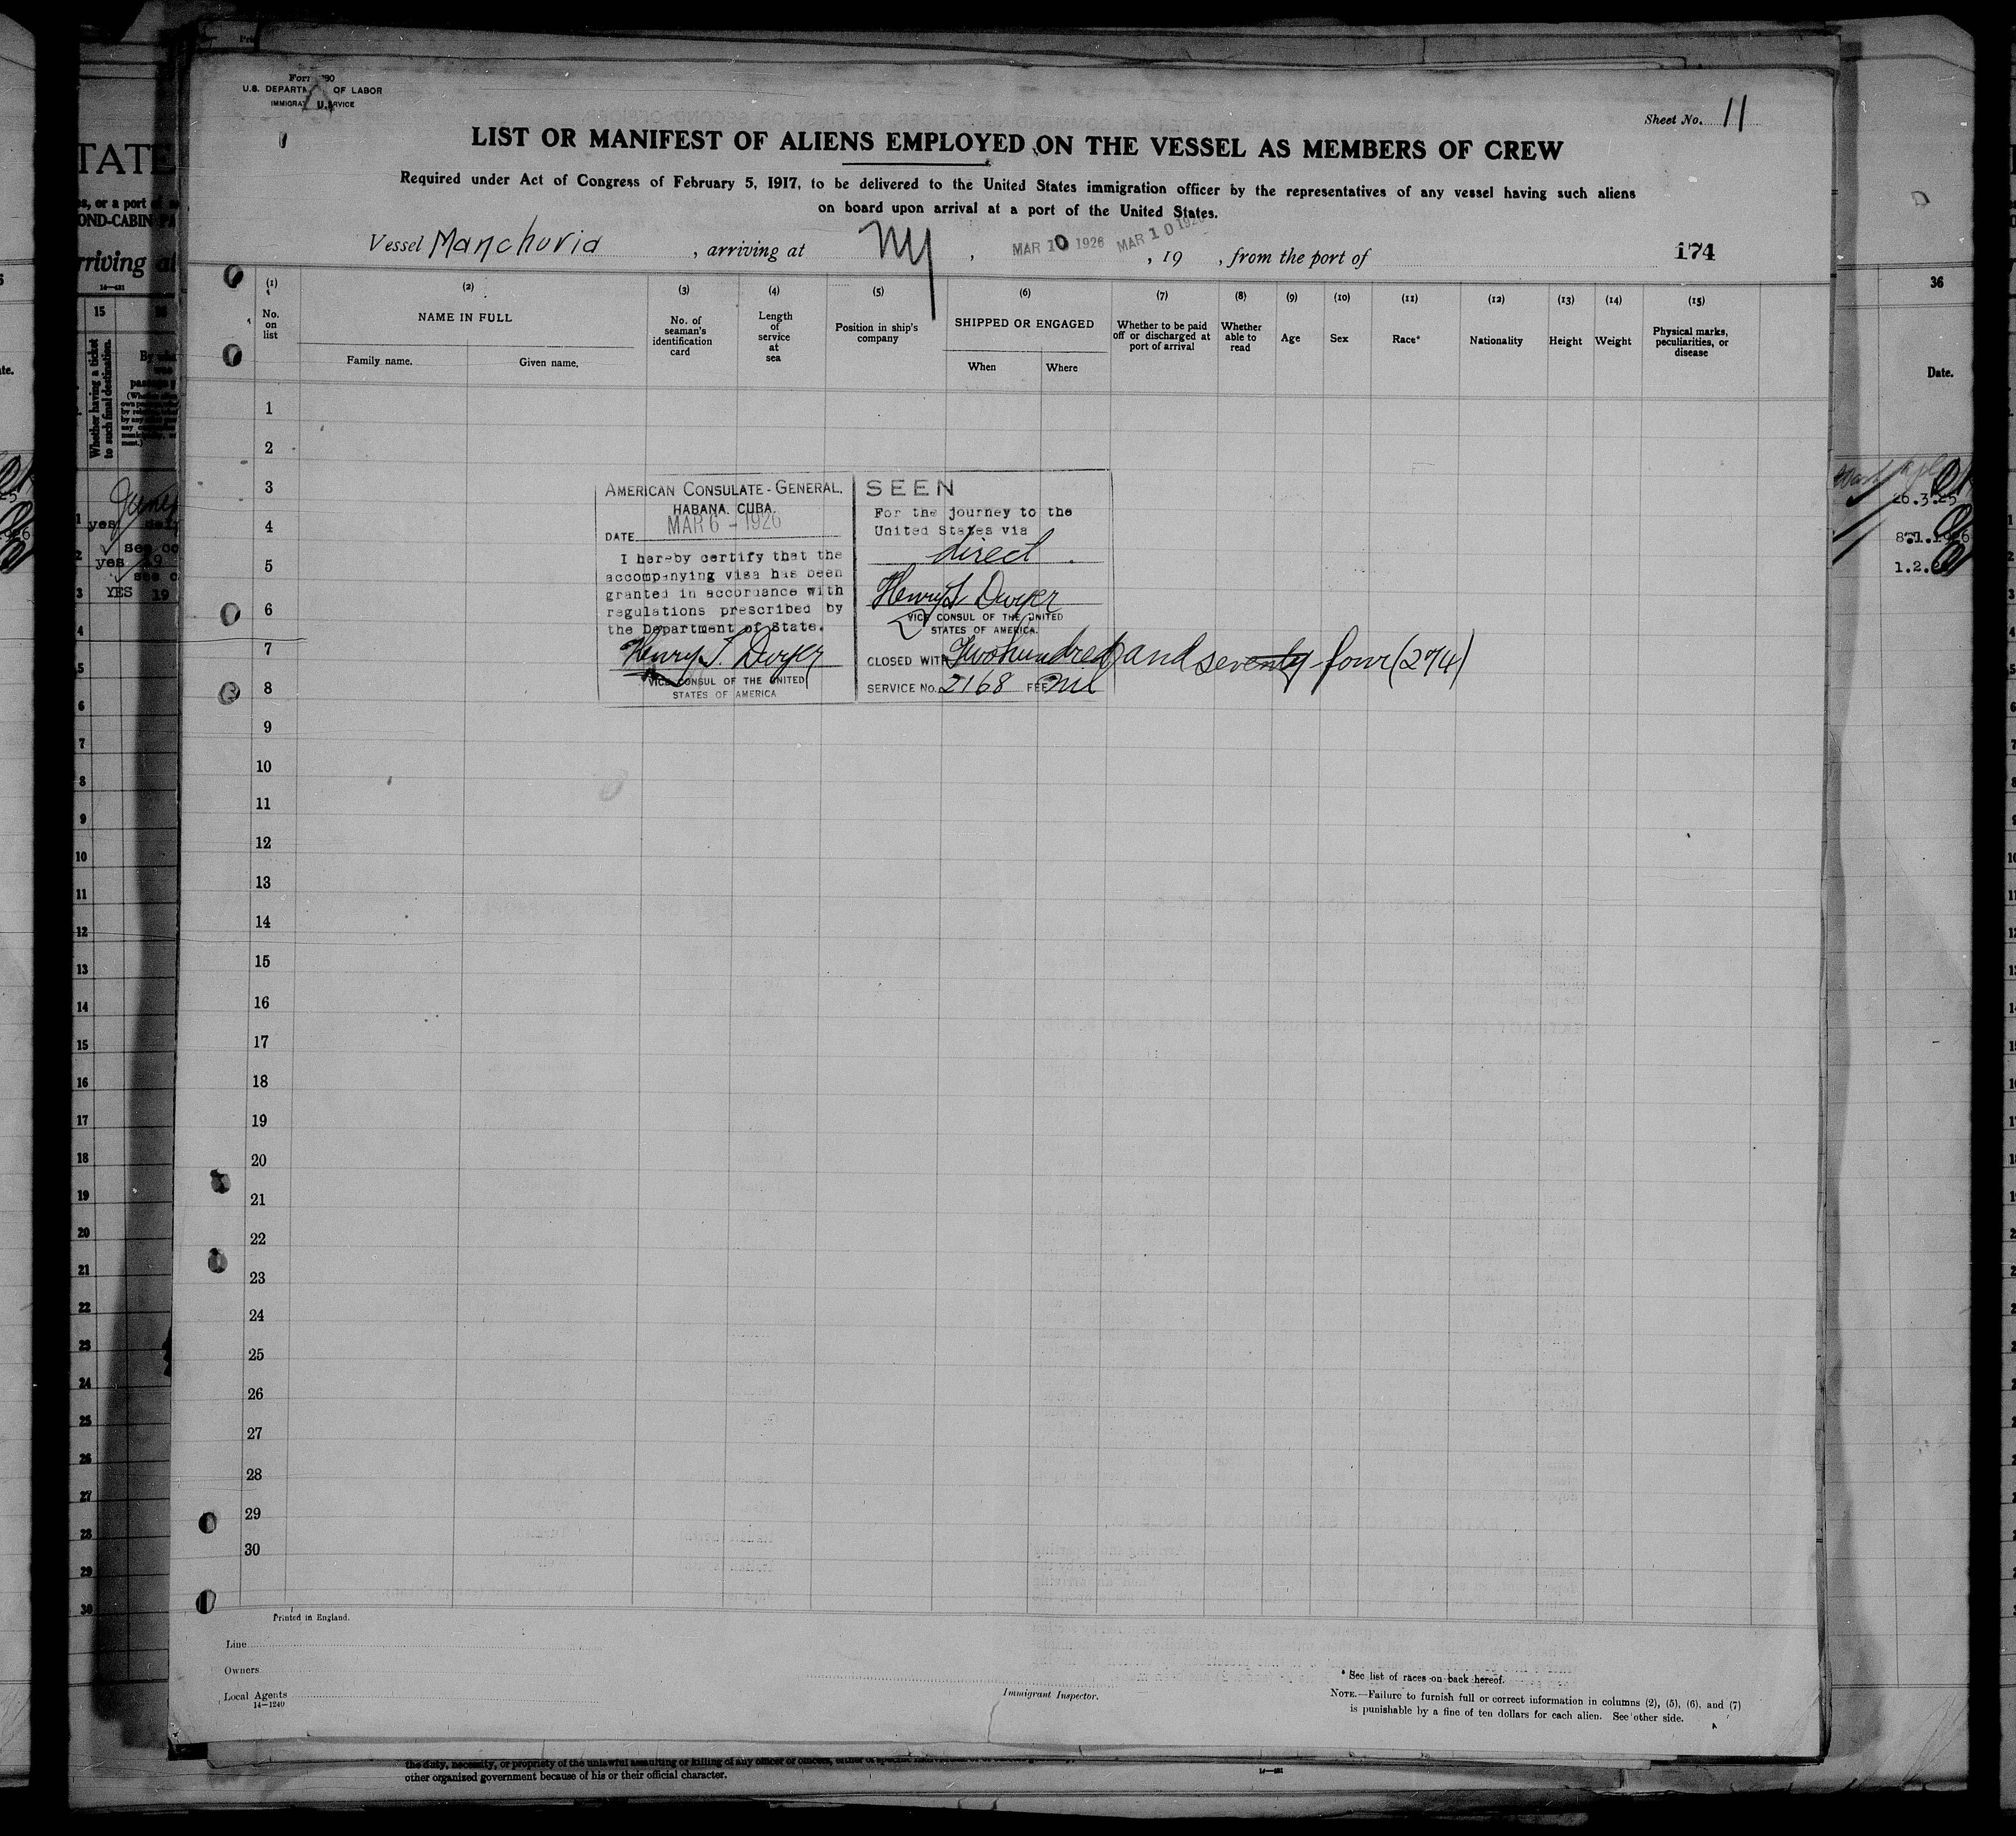 Form
U.S. DEPARTM OF LABOR
IMMIGRAT U. RVICE
Sheet No. 11
LIST OR MANIFEST OF ALIENS EMPLOYED ON THE VESSEL AS MEMBERS OF CREW
Required under Act of Congress of February 5, 1917, to be delivered to the United States immigration officer by the representatives of any vessel having such aliens
on board upon arrival at a port of the United States.
Vessel Manchuria , arriving at NY , MAR 10 1926 MAR 10 1926 , 19 , from the port of 174
(1) (2) (3) (4) (5) (6) (7) (8) (9) (10) (11) (12) (13) (14) (15)
No. on list
NAME IN FULL
Family name. Given name.
No. of seaman's identification card
Length of service at sea
Position in ship's company
SHIPPED OR ENGAGED
When Where
Whether to be paid off or discharged at port of arrival
Whether able to read
Age
Sex
Race*
Nationality
Height
Weight
Physical marks, peculiarities, or disease
1
2
3
4
5
6
7
8
9
10
11
12
13
14
15
16
17
18
19
20
21
22
23
24
25
26
27
28
29
30
AMERICAN CONSULATE-GENERAL.
HABANA. CUBA.
DATE MAR 6 - 1926
I hereby certify that the
accompanying visa has been
granted in accordance with
regulations prescribed by
the Department of State.
Henry T. Dwyer
VICE CONSUL OF THE UNITED
STATES OF AMERICA
SEEN
For the journey to the
United States via
direct.
Henry T. Dwyer
VICE CONSUL OF THE UNITED
STATES OF AMERICA.
CLOSED WITH Two hundred and seventy-four (274)
SERVICE No. 2168 FEE Nil
Printed in England.
Line
Owners
Local Agents
14—1240
Immigrant Inspector.
* See list of races on back hereof.
NOTE.—Failure to furnish full or correct information in columns (2), (5), (6), and (7)
is punishable by a fine of ten dollars for each alien. See other side.
the duty, necessity, or propriety of the unlawful assaulting or killing of any officer or officers,
other organized government because of his or their official character.
TATE
OND-CABIN PA
rriving at
15
Whether having a ticket
to such final destination.
yes
yes 19
YES 19
36
Date.
26.3.25